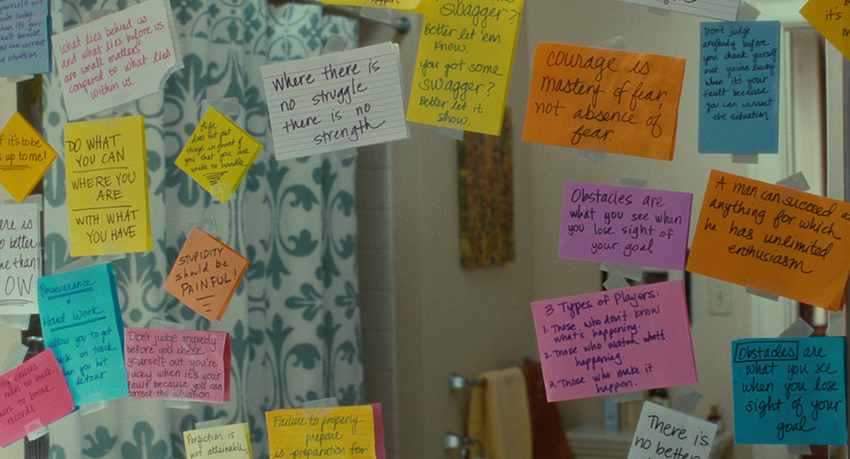 yourself out
What lies behind us
and what lies before us
are small matters
compared to what lies
within us.
if it's to be
up to me!
DO WHAT
YOU CAN
WHERE YOU
ARE
WITH WHAT
YOU HAVE
life
does not put
things in front of
you that you are
unable to handle
Where there is
no struggle
there is no
strength
swagger?
Better let 'em
know.
you got some
swagger?
Better let it
show.
courage is
mastery of fear,
not absence of
fear.
Don't judge
anybody before
you check yourself
out you're lucky
when it's your
fault because
you can correct
the situation
it's
STUPIDITY
should be
PAINFUL!
Obstacles are
what you see when
you lose sight of
your goal
A man can succeed
anything for which
he has unlimited
enthusiasm
Perseverance
+
Hand Work
allow you to get
back on track
you hit
detour
Don't judge anybody
before you check
yourself out. you're
lucky when it's your
fault because you can
correct the situation
men to break
to break
records
3 Types of Players:
1. Those who don't know
what's happening.
2. Those who watch what's
happening.
3. Those who make it
happen.
Obstacles are
what you see
when you lose
sight of your
goal.
Perfection is
not attainable,
Failure to properly
prepare
is preparation for
There is
no better